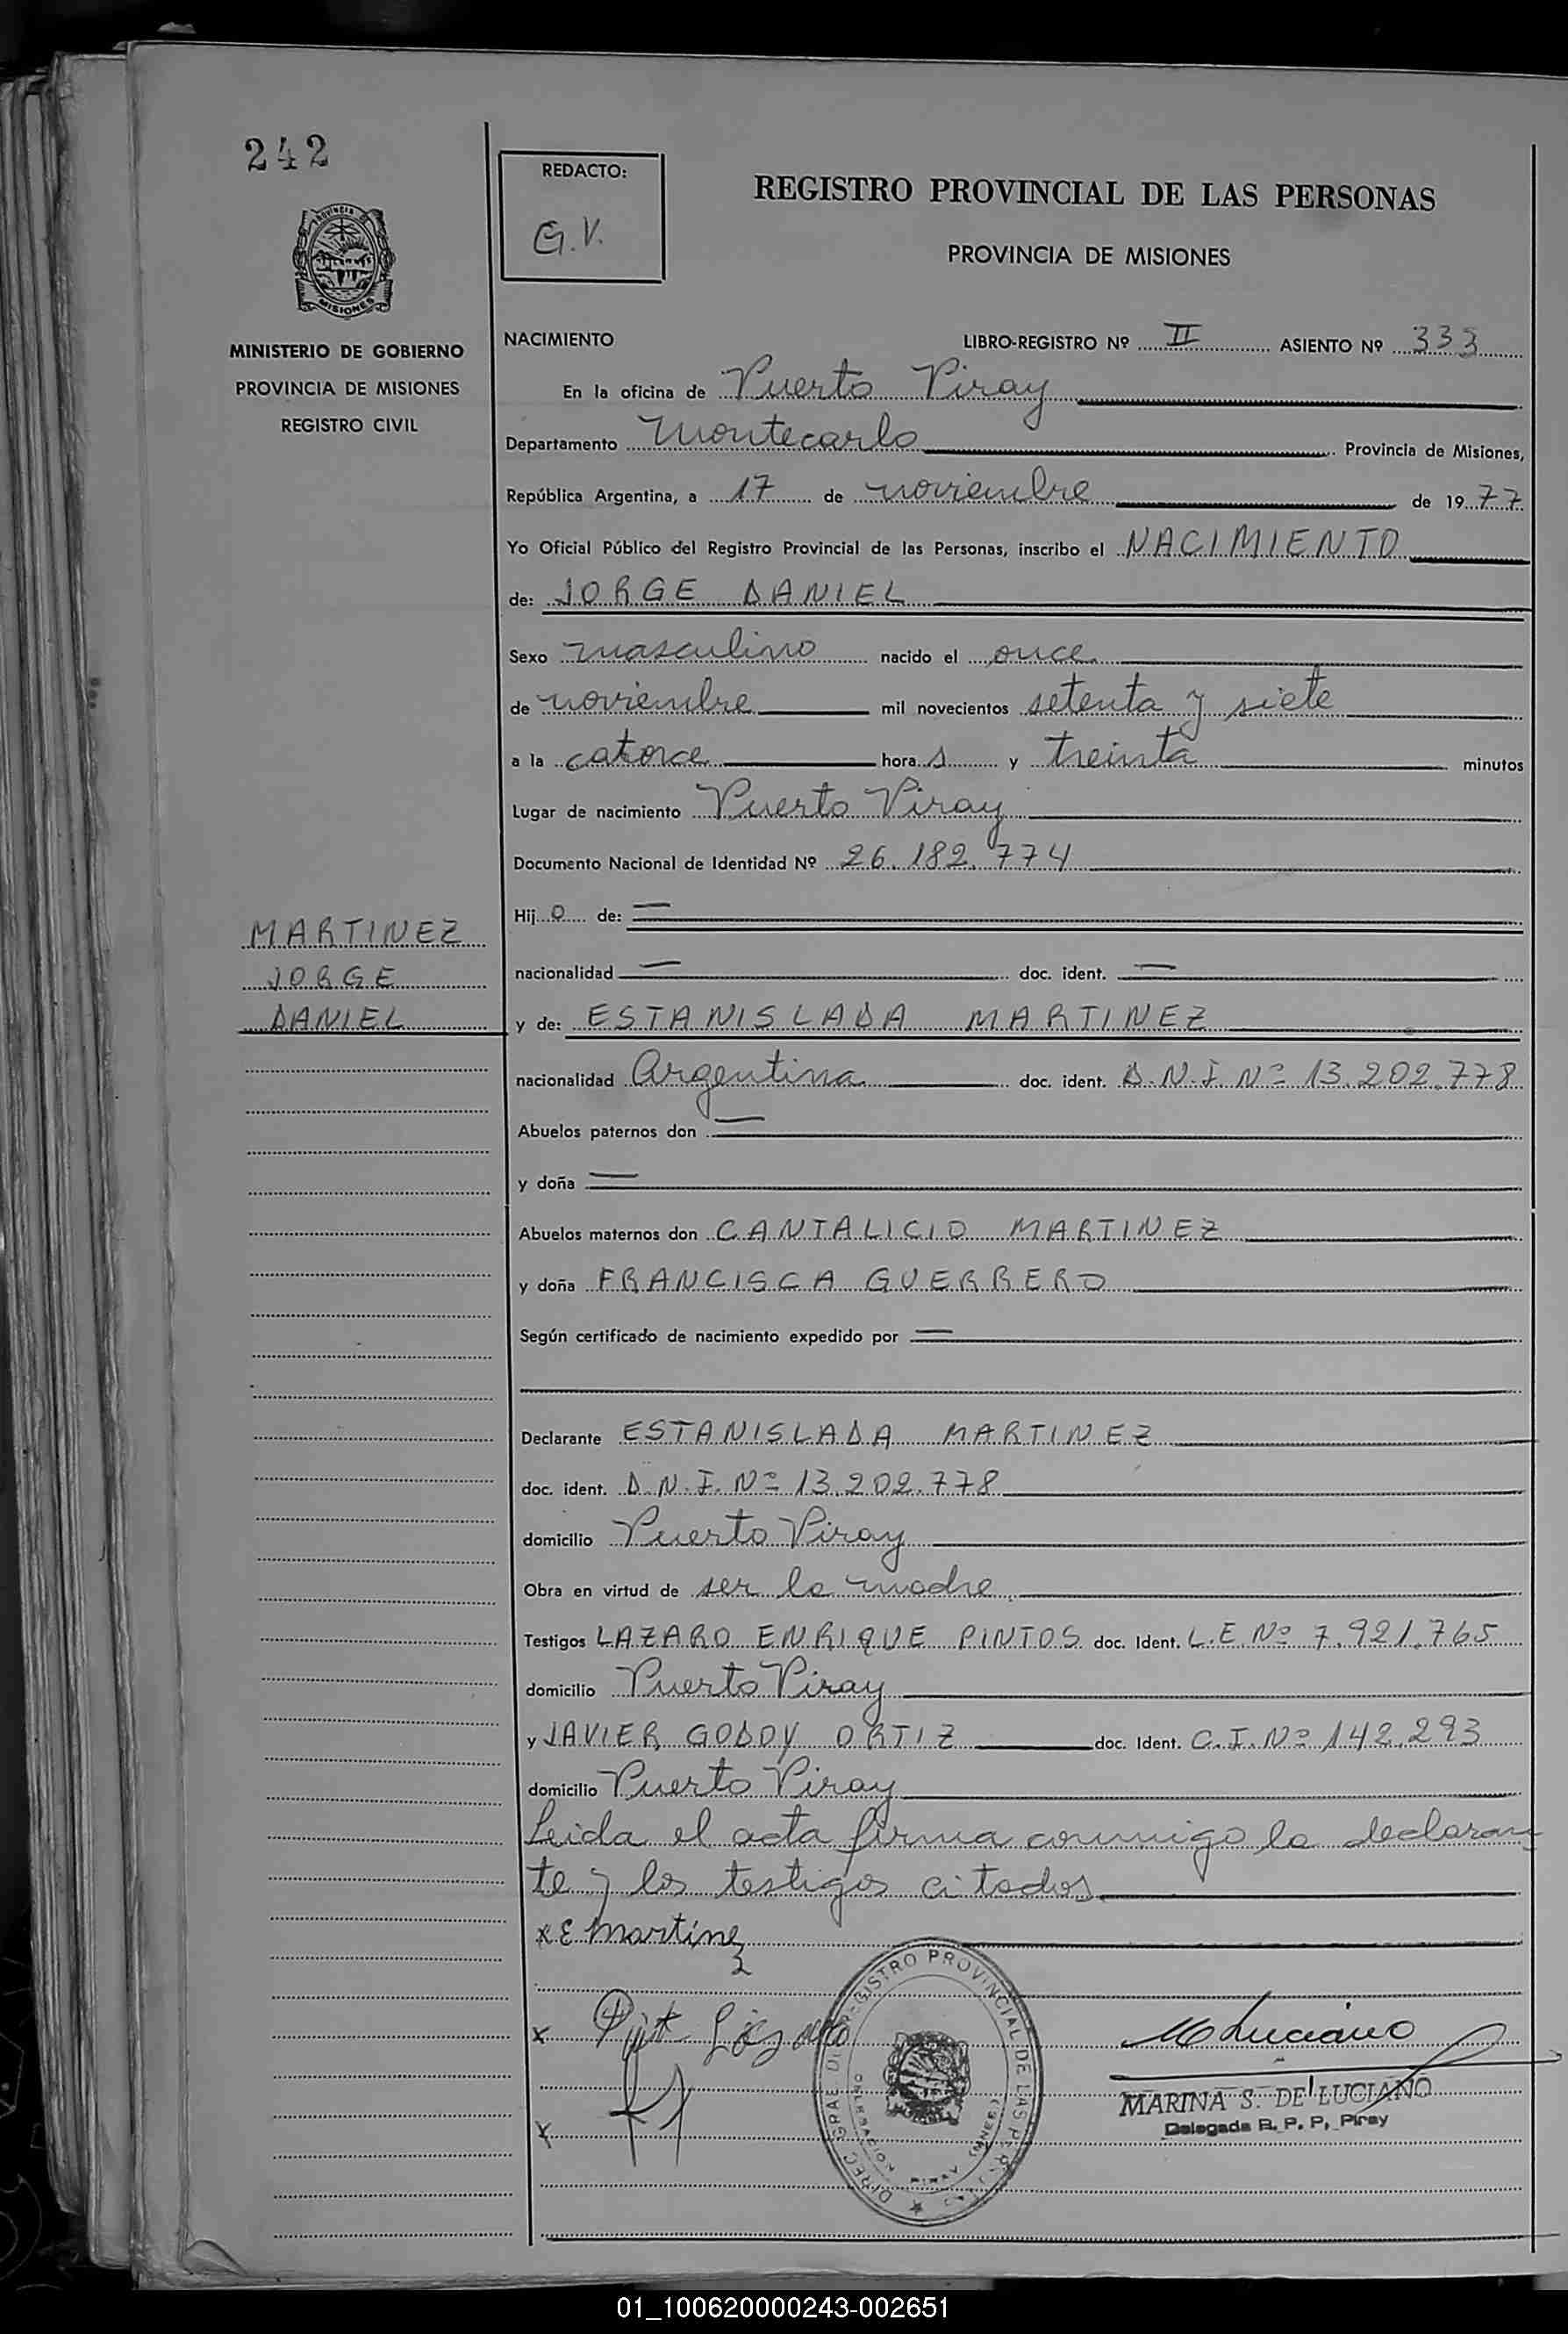 242
REDACTO:
G.V.
REGISTRO PROVINCIAL DE LAS PERSONAS
PROVINCIA DE MISIONES
MISIONES
MINISTERIO DE GOBIERNO
PROVINCIA DE MISIONES
REGISTRO CIVIL
NACIMIENTO LIBRO-REGISTRO Nº II ASIENTO Nº 333
En la oficina de Puerto Piray
Departamento Montecarlo Provincia de Misiones,
República Argentina, a 17 de noviembre de 1977
Yo Oficial Público del Registro Provincial de las Personas, inscribo el NACIMIENTO
de: JORGE DANIEL
Sexo masculino nacido el once
de noviembre mil novecientos setenta y siete
a la catorce hora s y treinta minutos
Lugar de nacimiento Puerto Piray
Documento Nacional de Identidad Nº 26.182.774
Hij o de: —
MARTINEZ
JORGE
DANIEL
nacionalidad — doc. ident. —
y de: ESTANISLADA MARTINEZ
nacionalidad Argentina doc. ident. D.N.I. Nº 13.202.778
Abuelos paternos don —
y doña —
Abuelos maternos don CANTALICIO MARTINEZ
y doña FRANCISCA GUERRERO
Según certificado de nacimiento expedido por —
Declarante ESTANISLADA MARTINEZ
doc. ident. D.N.I. Nº 13.202.778
domicilio Puerto Piray
Obra en virtud de ser la madre
Testigos LAZARO ENRIQUE PINTOS doc. Ident. L.E. Nº 7.921.765
domicilio Puerto Piray
y JAVIER GODOY ORTIZ doc. Ident. C.I. Nº 142.293
domicilio Puerto Piray
Leida el acta firma conmigo la declaran
te y los testigos citados
x E Martinez
x
M Luciano
MARINA S. DE LUCIANO
Delegada R. P. P. Piray
x
REGISTRO PROVINCIAL DE LAS
01_100620000243-002651